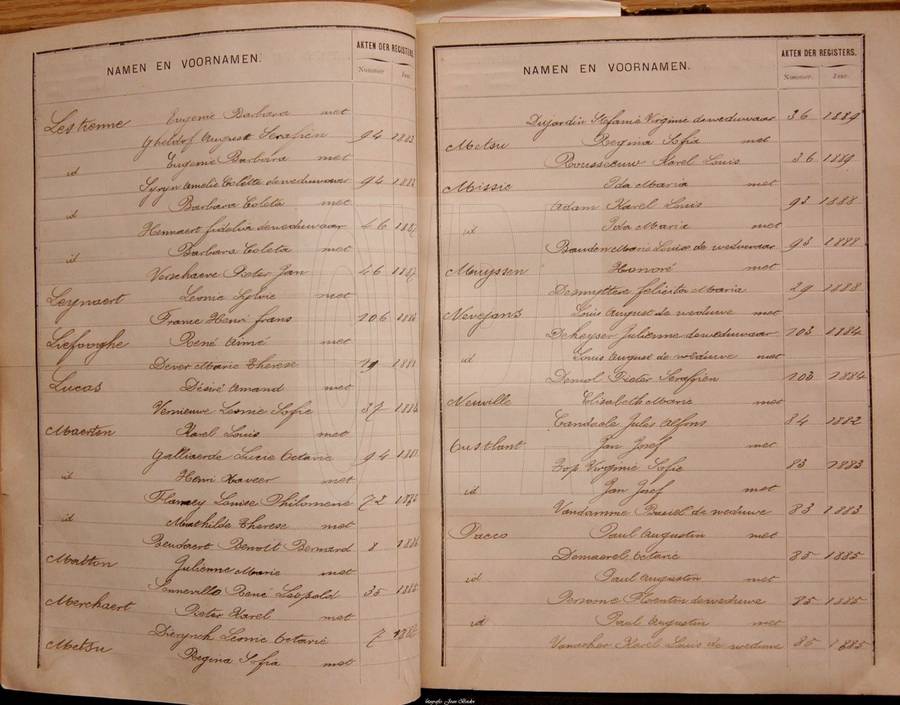 NAMEN EN VOORNAMEN.
AKTEN DER REGISTERS.
Nummer Jaar.
Lestienne Eugenie Barbara met
Gheldof August Serafien 94 1882
id Eugenie Barbara met
Syryn Amelie Colette de weduwaar 94 1882
id Barbara Coleta met
Hennaert fidelia de weduwaar 46 1887
id Barbara Coleta met
Verschaeve Pieter Jan 46 1887
Leynaert Leonie Sylvie met
France Henri frans 106
Liefooghe René Aimé met
Dever Marie Therese
Lucas Désiré Amand met
Vernieuwe Leonie Sofie 37
Maerten Karel Louis met
Galliaerde Lucie Octavie 94
id Henri Xavier met
Flamey Louise Philomene 72
id Mathilde Therese met
Beudaert Benoit Bernard 8
Matton Julienne Marie met
Senneville René Leopold 35
Merchaert Pieter Karel met
Dierynck Leonie Octavie 7
Metsu Regina Sofia met
NAMEN EN VOORNAMEN.
AKTEN DER REGISTERS.
Nummer. Jaar.
Dujardin Stefanie Virginie de weduwaar 36 1889
Metsu Regina Sofia met
Rousseeuw Karel Louis 36 1889
Missic Ida Maria met
Adam Karel Louis 93 1888
id Ida Maria met
Bauden Marie Louise de weduwaar 93 1888
Muyssen Honoré met
Desmyttere felicita Maria 29 1888
Nevejans Louis August de weduwe met
Dekeyser Julienne de weduwaar 103 1884
id Louis August de weduwe met
Demol Pieter Serafien 103 1884
Neuville Elisabeth Marie met
Candaele Jules Alfons 84 1882
Oustlant Jan Josef met
Top Virginie Sofie 83 1883
id Jan Josef met
Vandamme Basiel de weduwe 83 1883
Pacco Paul Augustin met
Demaerel Octavie 85 1885
id Paul Augustin met
Persome Florentin de weduwe 85 1885
id Paul Augustin met
Karel Louis de weduwe 85 1885